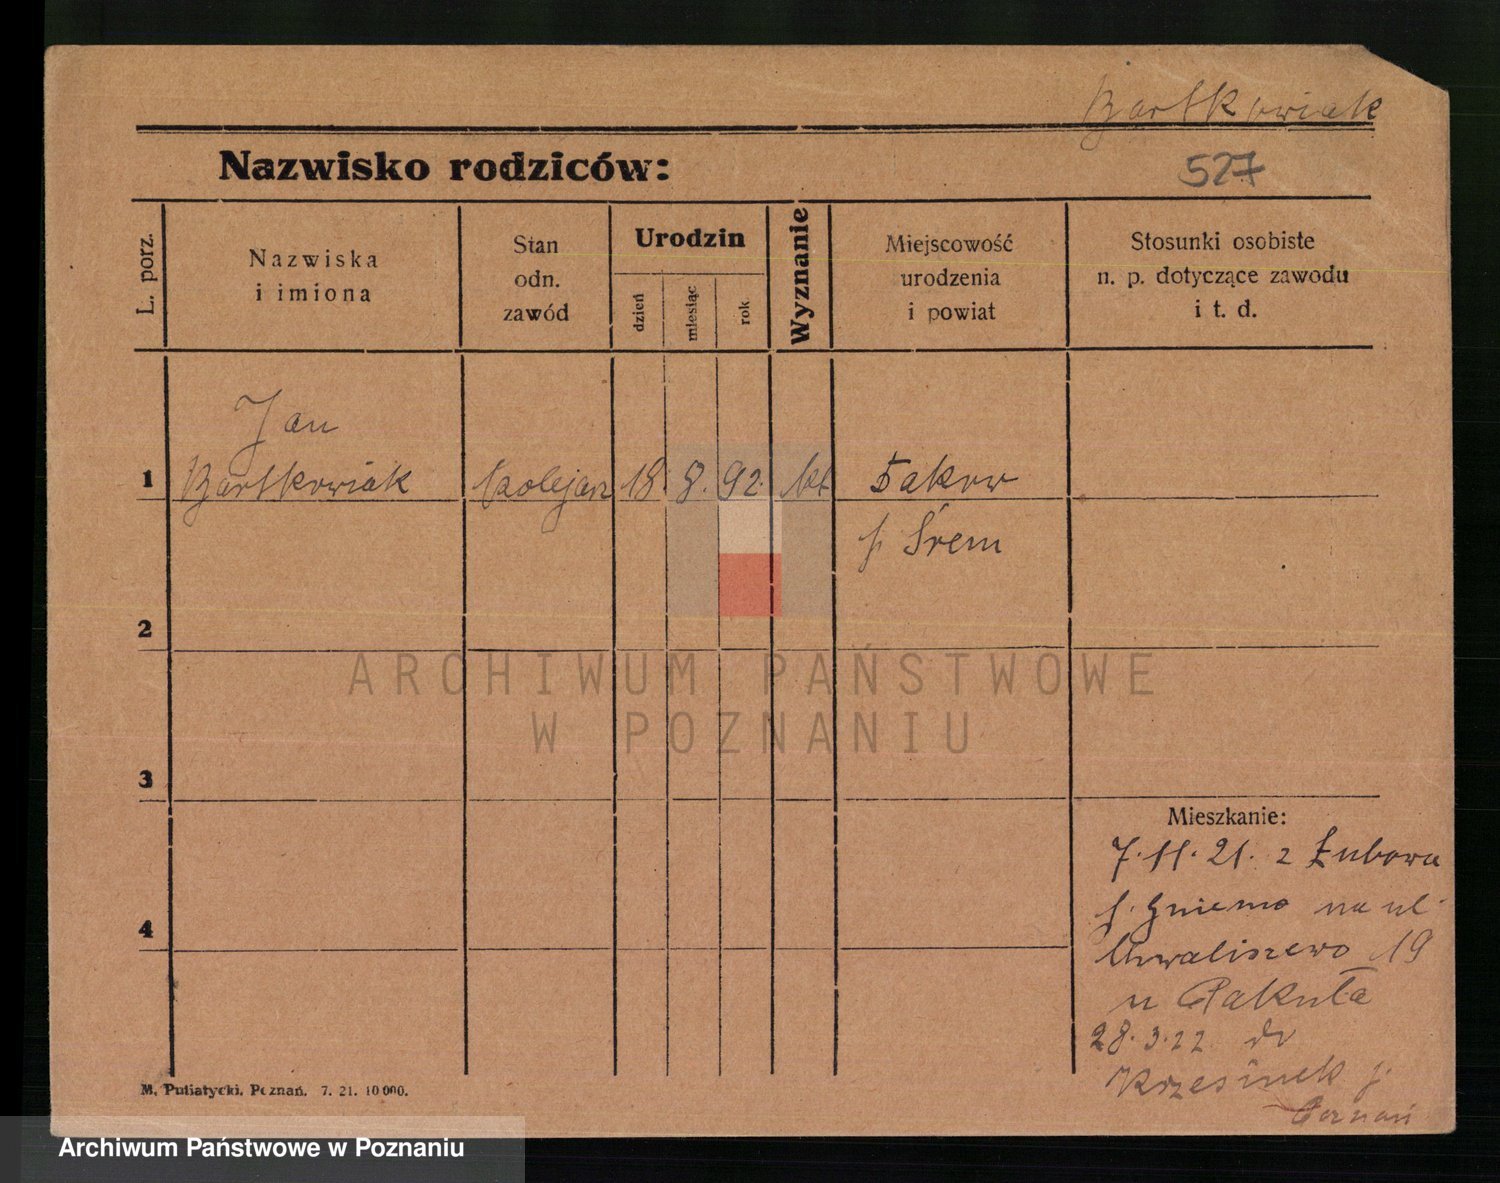 Bartkowiak
Nazwisko rodziców:
527
L. porz.
Nazwiska
i imiona
Stan
odn.
zawód
Urodzin
dzień
miesiąc
rok
Wyznanie
Miejscowość
urodzenia
i powiat
Stosunki osobiste
n. p. dotyczące zawodu
i t. d.
Jan
1 Bartkowiak kolejarz 18 8. 92. kt
p Śrem
2
ARCHIWUM PAŃSTWOWE
W POZNANIU
3
Mieszkanie:
7.11.21. z Łubowa
p. na ul
4
Chwaliszewo 19
u Pakuła
28.3.22 do
Krzesinek p.
Poznań
M. Putiatycki, Poznań. 7. 21. 10 000.
Archiwum Państwowe w Poznaniu